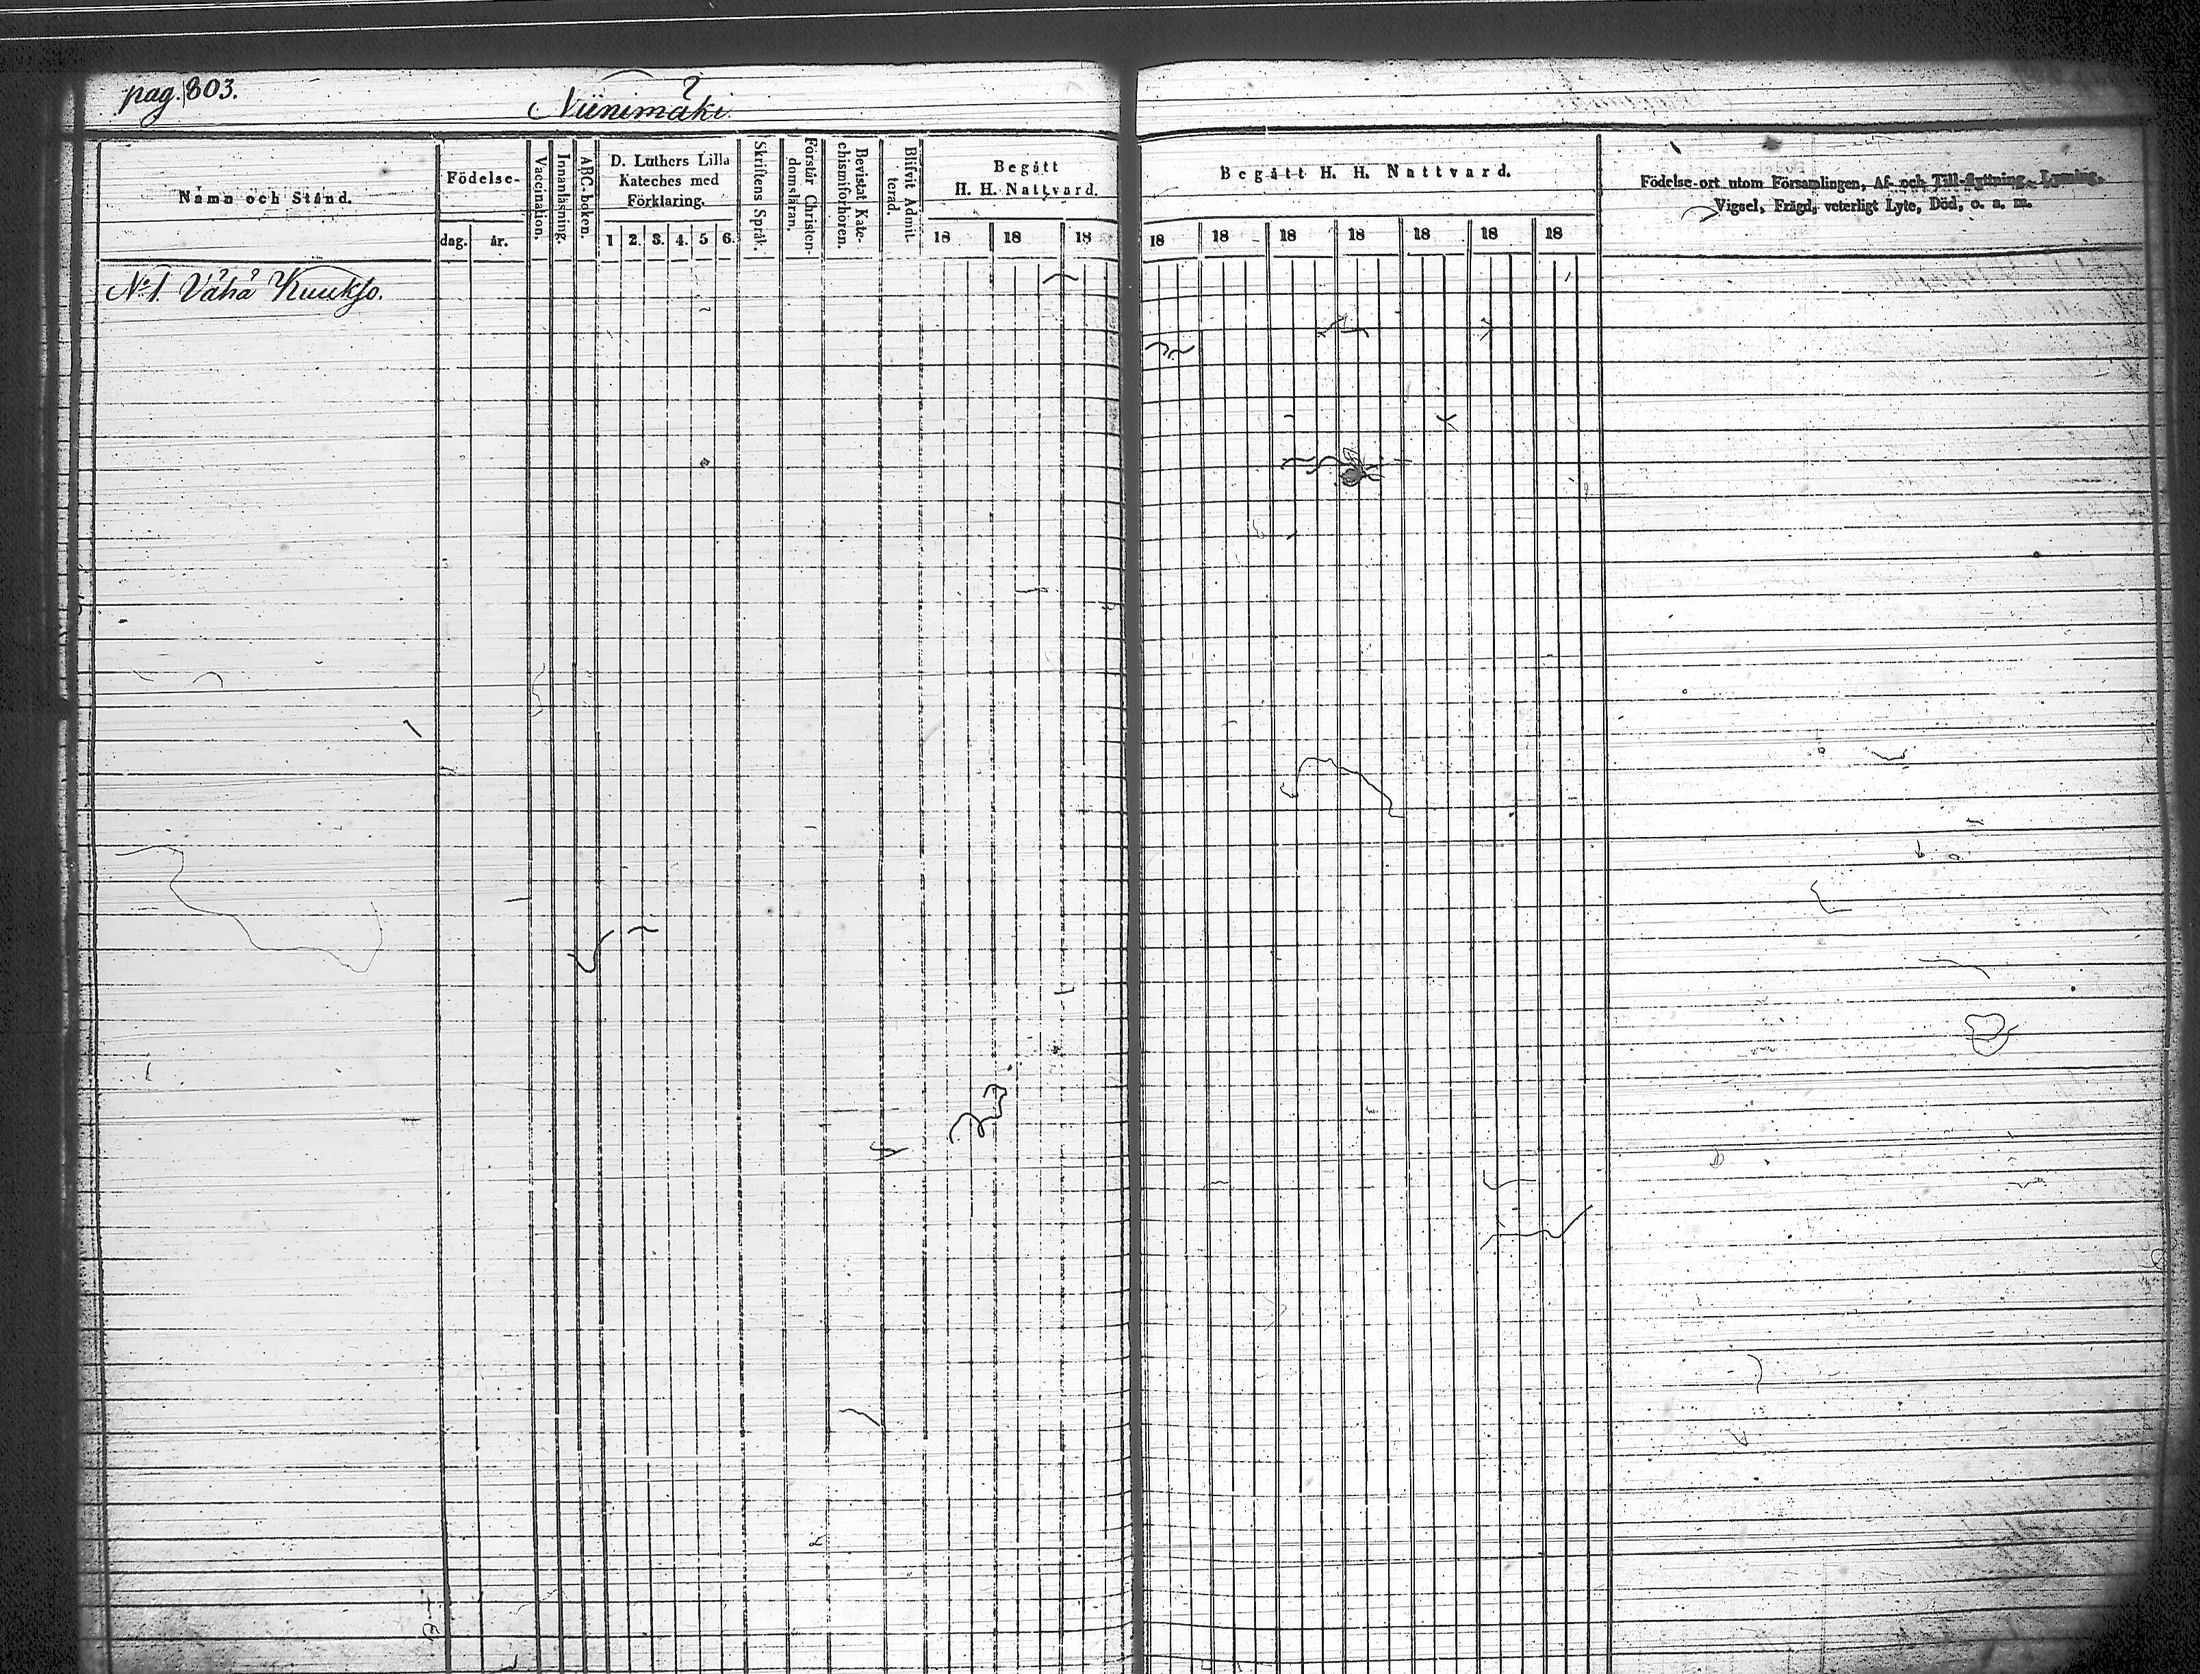 pag. 803.
Niinimäki.
Namn och Stånd.
Födelse-
dag.
år.
Vaccination.
Innanläsning.
ABC-boken.
D. Luthers Lilla
Kateches med
Förklaring.
1 2. 3. 4. 5 6.
Skriftens Språk.
Förstår Christen-
domsläran.
Bevistat Kate-
chismiförhören.
Blifvit Admit-
terad.
Begått
H. H. Nattvard.
18 18 18
Begått H. H. Nattvard.
18 18 18 18 18 18 18
Födelse-ort utom Församlingen, Af- och Till-flyttning, Lysning,
Vigsel, Frägd, veterligt Lyte, Död, o. s. m.
No 1. Vähä Kuukso.